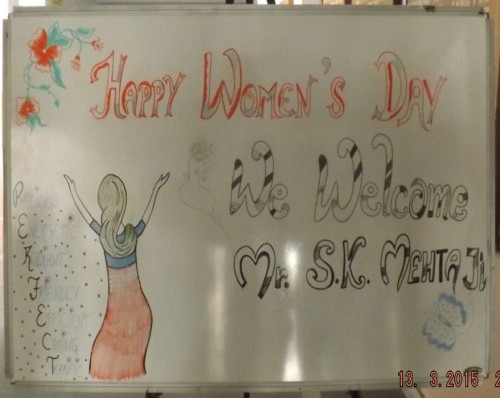 HAPPY WOMEN'S DAY
We Welcome
Mr. S.K. MEHTA Ji
P
E
R
F
E
C
T
13. 3.2015 2